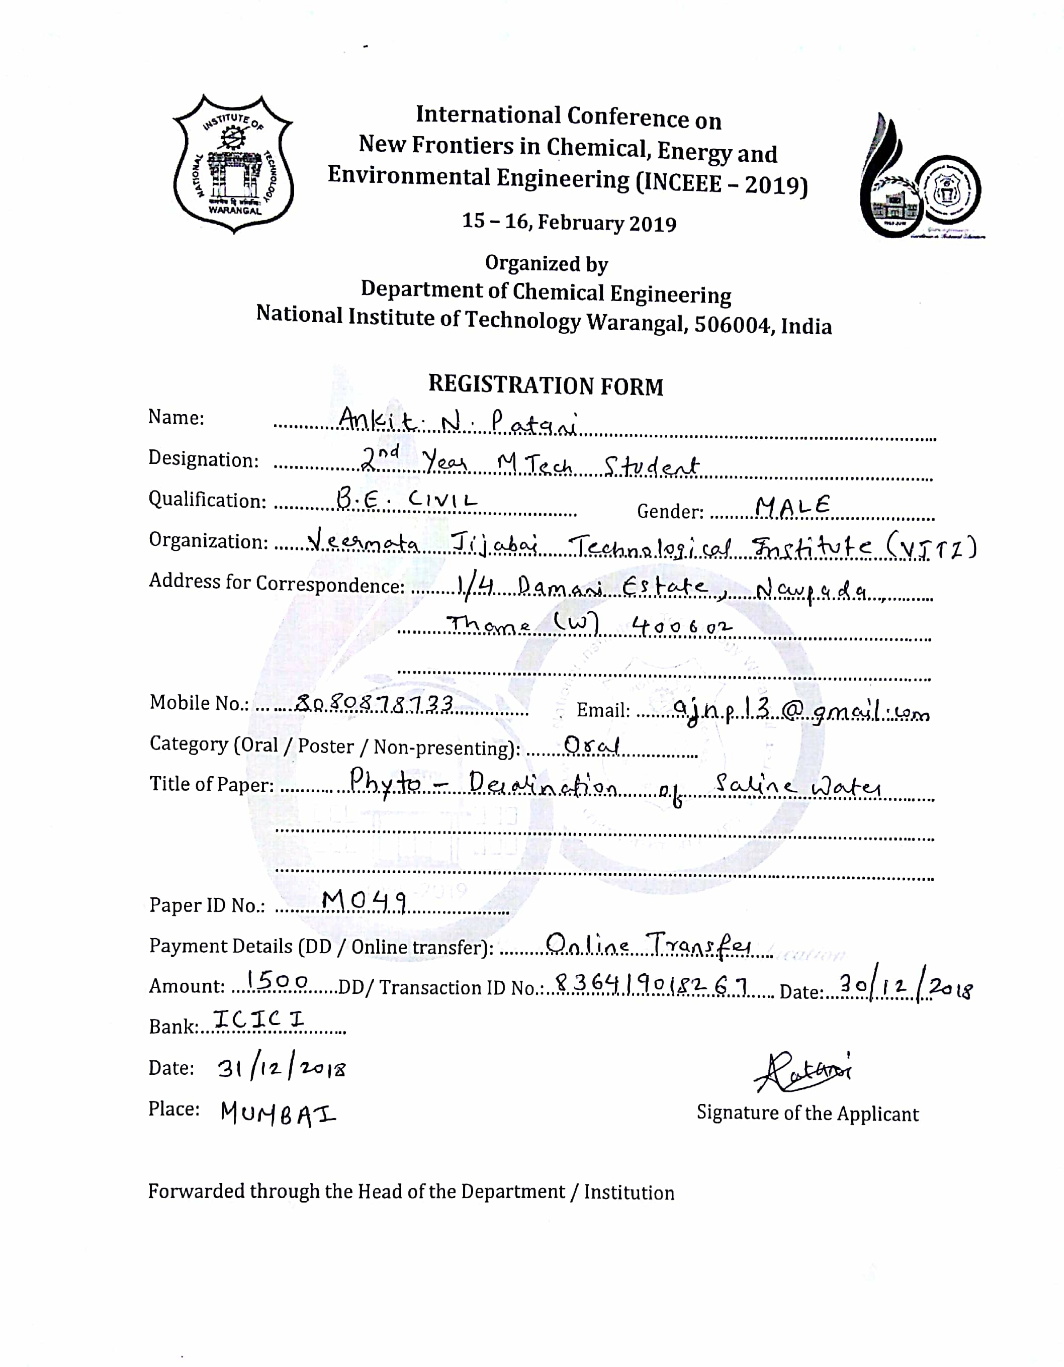 International Conference on
New Frontiers in Chemical, Energy and
Environmental Engineering (INCEEE – 2019)
15 – 16, February 2019
Organized by
Department of Chemical Engineering
National Institute of Technology Warangal, 506004, India
NATIONAL INSTITUTE OF TECHNOLOGY
WARANGAL
REGISTRATION FORM
Name: Ankit. N. Patani
Designation: 2nd Year M.Tech Student
Qualification: B.E. CIVIL Gender: MALE
Organization: Veermata Jijabai Technological Institute (VJTI)
Address for Correspondence: 1/4 Damani Estate, Naupada,
Thane (W) 400602
Mobile No.: 8080878733 Email: ajnp13@gmail.com
Category (Oral / Poster / Non-presenting): Oral
Title of Paper: Phyto – Desalination of Saline Water
Paper ID No.: M049
Payment Details (DD / Online transfer): Online Transfer
Amount: 1500 DD/ Transaction ID No.: 836419018267 Date: 30/12/2018
Bank: ICICI
Date: 31/12/2018
Place: MUMBAI
Signature of the Applicant
Forwarded through the Head of the Department / Institution